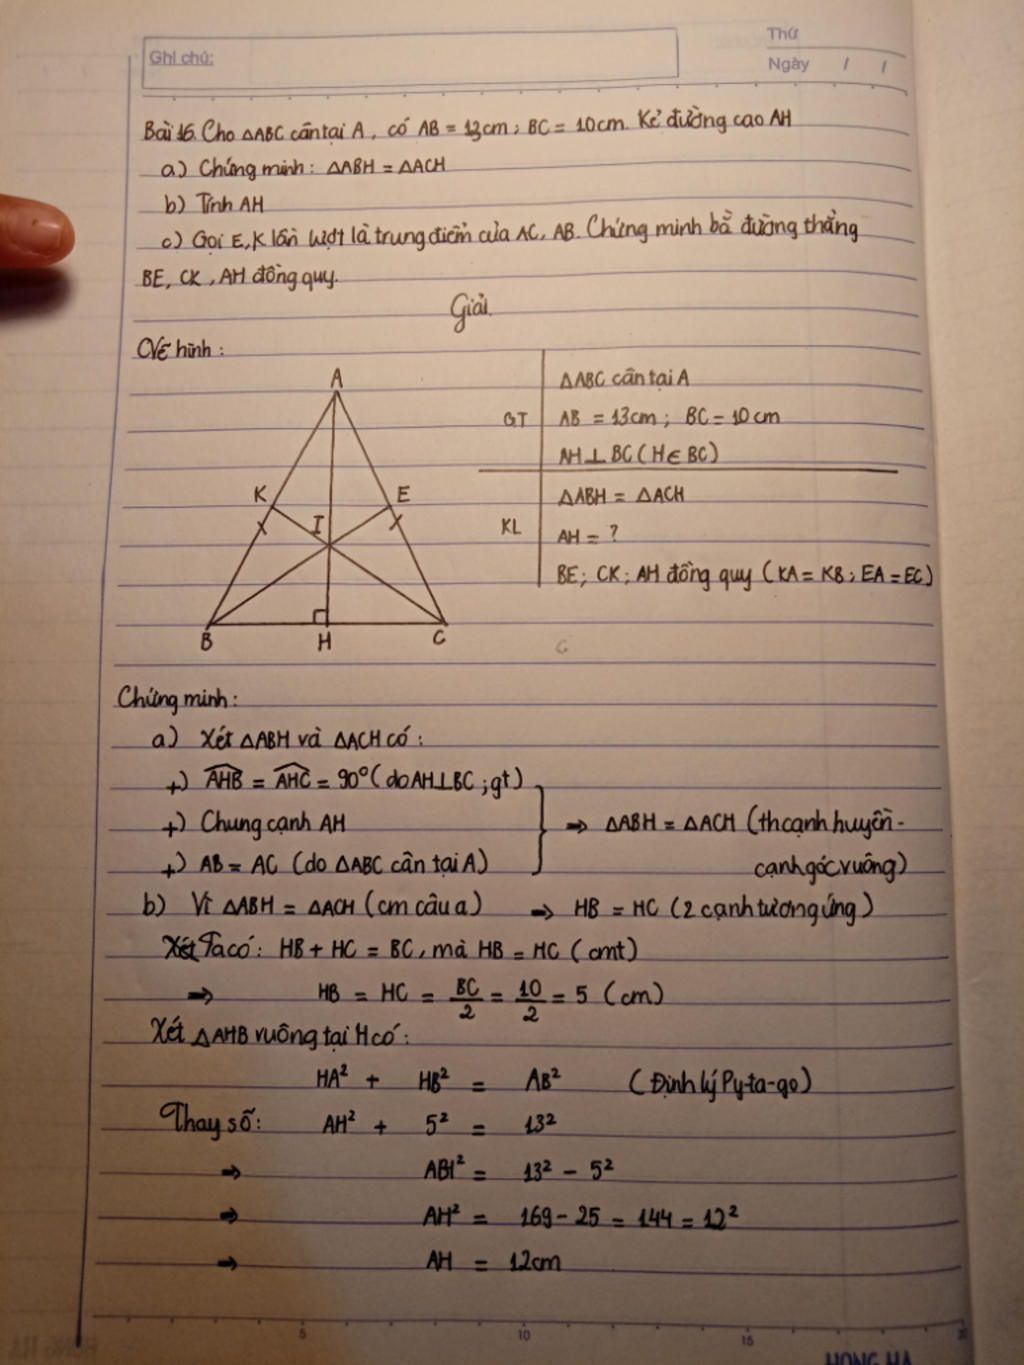 Ghi chú:
Thứ
Ngày / /
Bài 16. Cho △ABC cân tại A, có AB = 13cm; BC = 10cm. Kẻ đường cao AH
a) Chứng minh: △ABH = △ACH
b) Tính AH
c) Gọi E, K lần lượt là trung điểm của AC, AB. Chứng minh bà đường thẳng
BE, CK, AH đồng quy.
Giải.
Vẽ hình:
A
K
E
I
B
H
C
GT
△ABC cân tại A
AB = 13cm; BC = 10cm
AH⊥BC (H∈BC)
KL
△ABH = △ACH
AH = ?
BE; CK; AH đồng quy (KA = KB; EA = EC)
Chứng minh:
a) Xét △ABH và △ACH có:
+) AHB = AHC = 90° (do AH⊥BC; gt)
+) Chung cạnh AH
+) AB = AC (do △ABC cân tại A)
⇒ △ABH = △ACH (th cạnh huyền-
cạnh góc vuông)
b) Vì △ABH = △ACH (cm câu a) ⇒ HB = HC (2 cạnh tương ứng)
Xét Ta có: HB + HC = BC, mà HB = HC (cmt)
⇒ HB = HC = BC/2 = 10/2 = 5 (cm)
Xét △AHB vuông tại H có:
HA² + HB² = AB² (Định lý Py-ta-go)
Thay số: AH² + 5² = 13²
⇒ AH² = 13² - 5²
⇒ AH² = 169 - 25 = 144 = 12²
⇒ AH = 12cm
5 10 15 20
HONG HA